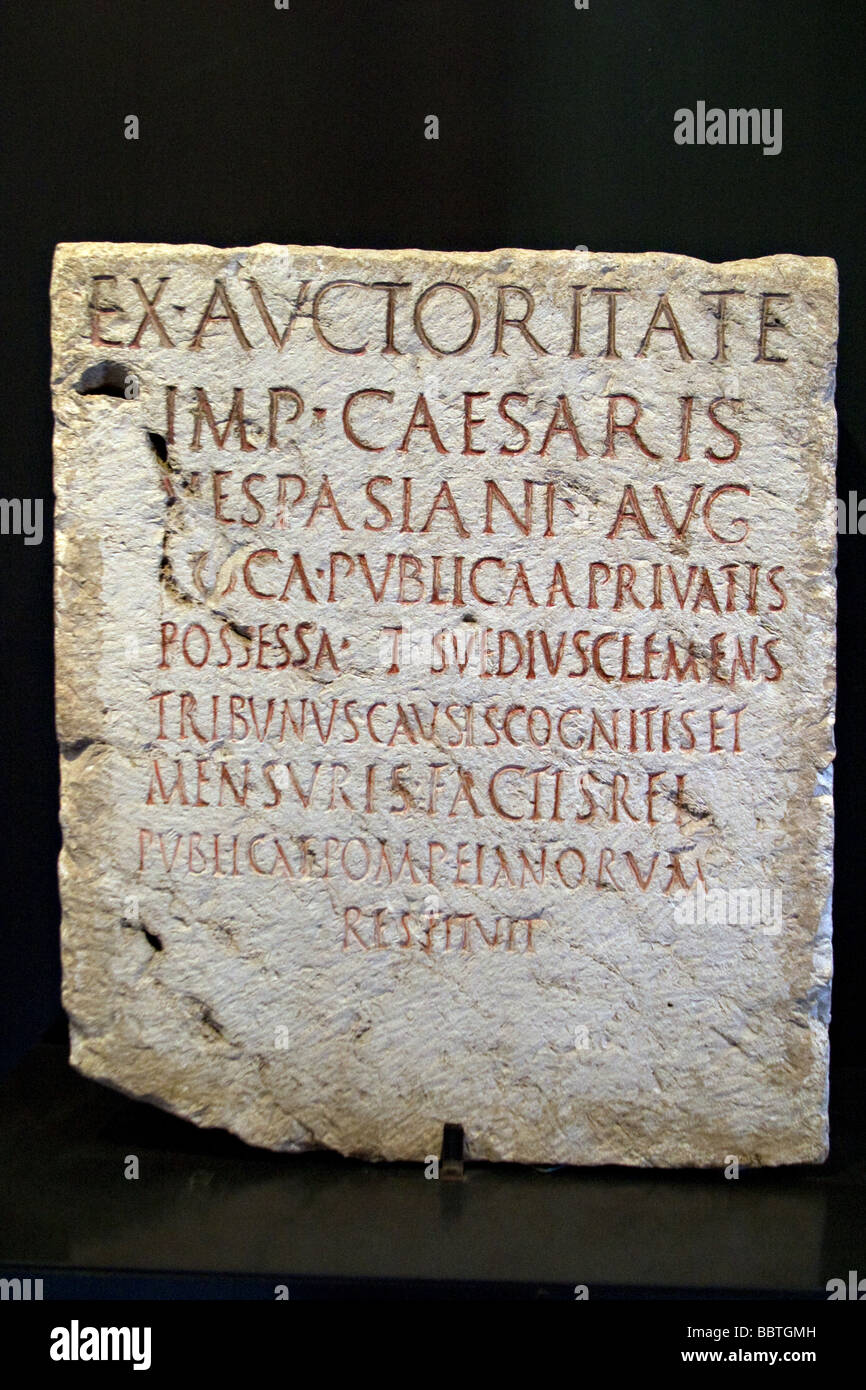 EX·AVCTORITATE
IMP·CAESARIS
VESPASIANI·AVG
LOCA·PVBLICA A PRIVATIS
POSSESSA·T SVEDIVS CLEMENS
TRIBVNVS CAVSIS COGNITIS ET
MENSVRIS·FACTIS REI
PVBLICAE POMPEIANORVM
RESTITVIT
alamy
alamy
a
a
a
a
a
a
alamy stock photo
Image ID: BBTGMH
www.alamy.com